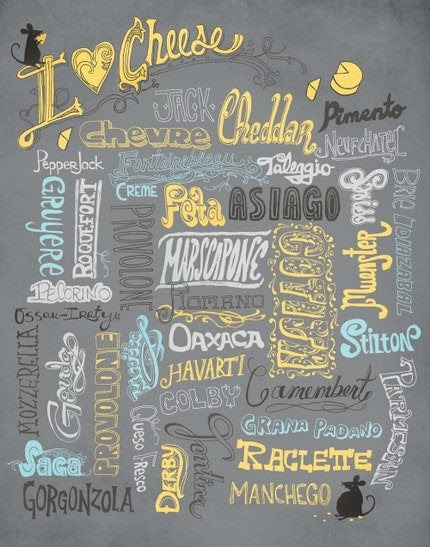 I
Cheese
JACK
Cheddar
Pimento
Chevre
Neufchatel
PepperJack
Fontainebleau
Taleggio
Swiss
Brie
IDIAZABAL
GRUYERE
ROQUEFORT
CREME
PROVOLONE
Feta
ASIAGO
MARSCAPONE
Muenster
Pecorino
ROMANO
Ossau-Iraty
MOZZERELLA
OAXACA
Stilton
PROVOLONE
HAVARTI
COLBY
Camembert
PARMESAN
Queso Fresco
Fontina
GRANA PADANO
Saga
DERBY
RACLETTE
GORGONZOLA
MANCHEGO